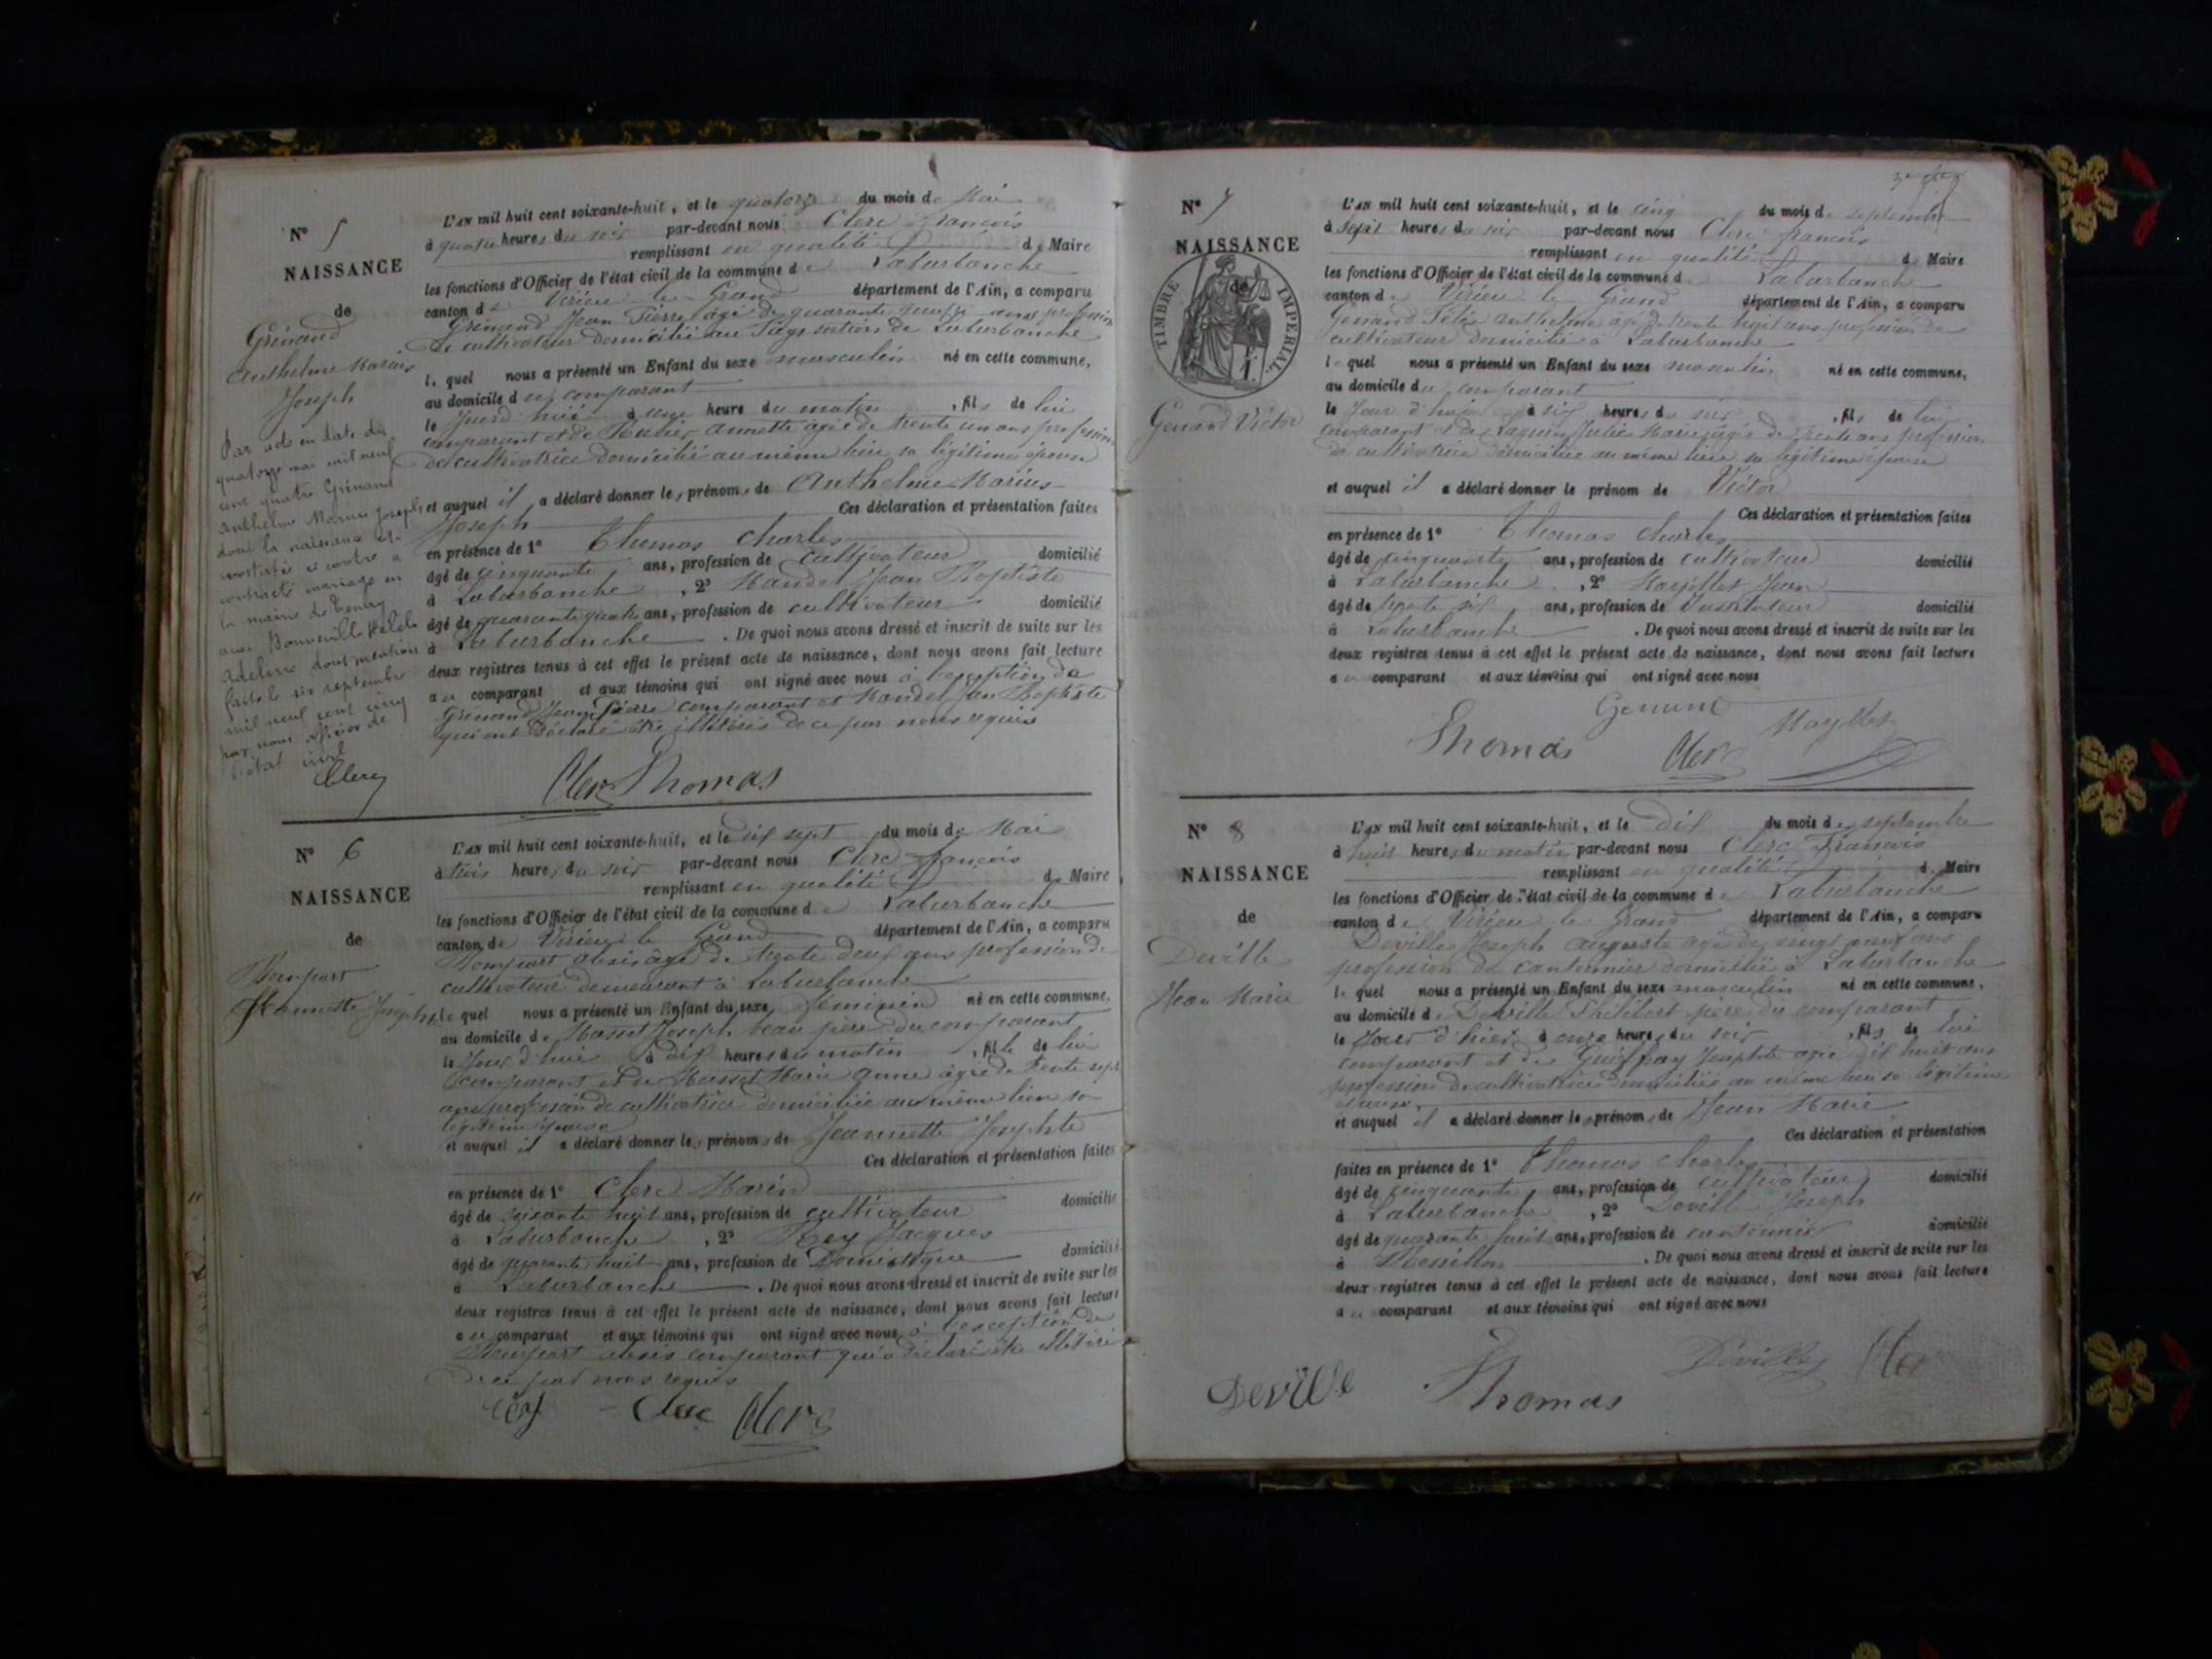 N° 5
NAISSANCE
de
Grinand
Anthelme Marius
Joseph
Par acte en date du
quatorze mai mil neuf
cent quatre Grinand
Anthelme Marius Joseph
dont la naissance est
constatée ci contre a
contracté mariage en
la mairie de Tenay
avec Bonneville
Adeline dont mention
faite le six septembre
mil neuf cent cinq
par nous officier de
l'état civil
Clerc
L'AN mil huit cent soixante-huit, et le quatorze du mois de Mai
à quatre heures du soir par-devant nous Clerc François
remplissant en qualité de Maire
les fonctions d'Officier de l'état civil de la commune de Laburbanche
canton de Virieu le Grand département de l'Ain, a comparu
Grinand Jean Pierre âgé de quarante ans profession
de cultivateur domicilié au section de Laburbanche
lequel nous a présenté un Enfant du sexe masculin né en cette commune,
au domicile du comparant
le jourd'hui à une heure du matin, fils de lui
comparant et de Annette âgée de trente un ans profession
de cultivatrice domicilié au même lieu sa légitime épouse
et auquel il a déclaré donner les prénoms de Anthelme Marius
Joseph Ces déclaration et présentation faites
en présence de 1° Thomas Charles
âgé de cinquante ans, profession de cultivateur domicilié
à Laburbanche, 2° Mandel Jean Baptiste
âgé de quarante quatre ans, profession de cultivateur domicilié
à Laburbanche. De quoi nous avons dressé et inscrit de suite sur les
deux registres tenus à cet effet le présent acte de naissance, dont nous avons fait lecture
au comparant et aux témoins qui ont signé avec nous à l'exception de
Grinand Jean Pierre comparant et Mandel Jean Baptiste
qui ont déclaré être illitérés de ce par nous requis
Clerc Thomas
N° 6
NAISSANCE
de
Bompart
Jeannette Josephte
L'AN mil huit cent soixante-huit, et le dix sept du mois de Mai
à trois heures du soir par-devant nous Clerc François
remplissant en qualité de Maire
les fonctions d'Officier de l'état civil de la commune de Laburbanche
canton de Virieu le Grand département de l'Ain, a comparu
Bompart âgé de trente deux ans profession de
cultivateur demeurant à Laburbanche
lequel nous a présenté un Enfant du sexe féminin né en cette commune,
au domicile de Masset Joseph beau père du comparant
le jour d'hui à dix heures du matin, fille de lui
comparant et de Masset Marie Anne âgée de trente sept
ans profession de cultivatrice domiciliée au même lieu sa
légitime épouse
et auquel il a déclaré donner les prénoms de Jeannette Josephte
Ces déclaration et présentation faites
en présence de 1° Clerc Marin
âgé de soixante huit ans, profession de cultivateur domicilié
à Laburbanche, 2° Rey Jacques
âgé de quarante huit ans, profession de Domestique domicilié
à Laburbanche. De quoi nous avons dressé et inscrit de suite sur les
deux registres tenus à cet effet le présent acte de naissance, dont nous avons fait lecture
au comparant et aux témoins qui ont signé avec nous à l'exception de
Bompart comparant qui a déclaré être illitéré
de ce par nous requis
Rey Clerc Clerc
N° 7
NAISSANCE
de
TIMBRE IMPERIAL
Genand Victor
L'AN mil huit cent soixante-huit, et le cinq du mois de septembre
à sept heures du soir par-devant nous Clerc François
remplissant en qualité de Maire
les fonctions d'Officier de l'état civil de la commune de Laburbanche
canton de Virieu le Grand département de l'Ain, a comparu
Genand Anthelme âgé de trente huit ans profession de
cultivateur domicilié à Laburbanche
lequel nous a présenté un Enfant du sexe masculin né en cette commune,
au domicile du comparant
le jour d'hui à six heures du soir, fils de lui
comparant et de Julie Marie âgée de trente ans profession
de cultivatrice domiciliée au même lieu sa légitime épouse
et auquel il a déclaré donner le prénom de Victor
Ces déclaration et présentation faites
en présence de 1° Thomas Charles
âgé de cinquante ans, profession de cultivateur domicilié
à Laburbanche, 2° Jean
âgé de trente six ans, profession de Instituteur domicilié
à Laburbanche. De quoi nous avons dressé et inscrit de suite sur les
deux registres tenus à cet effet le présent acte de naissance, dont nous avons fait lecture
au comparant et aux témoins qui ont signé avec nous
Genand
Thomas Clerc
N° 8
NAISSANCE
de
Deville
Jean Marie
L'AN mil huit cent soixante-huit, et le dix du mois de septembre
à huit heures du matin par-devant nous Clerc François
remplissant en qualité de Maire
les fonctions d'Officier de l'état civil de la commune de Laburbanche
canton de Virieu le Grand département de l'Ain, a comparu
Deville Joseph Auguste âgé de vingt neuf ans
profession de cantonnier domicilié à Laburbanche
lequel nous a présenté un Enfant du sexe masculin né en cette commune,
au domicile de Deville Philibert père du comparant
le jour d'hier à onze heures du soir, fils de lui
comparant et de Josephte âgée dix huit ans
profession de cultivatrice domiciliée au même lieu sa légitime
épouse
et auquel il a déclaré donner les prénoms de Jean Marie
Ces déclaration et présentation
faites en présence de 1° Thomas Charles
âgé de cinquante ans, profession de cultivateur domicilié
à Laburbanche, 2° Deville Joseph
âgé de quarante huit ans, profession de cantonnier domicilié
à Rossillon. De quoi nous avons dressé et inscrit de suite sur les
deux registres tenus à cet effet le présent acte de naissance, dont nous avons fait lecture
au comparant et aux témoins qui ont signé avec nous
Deville Thomas Deville Clerc